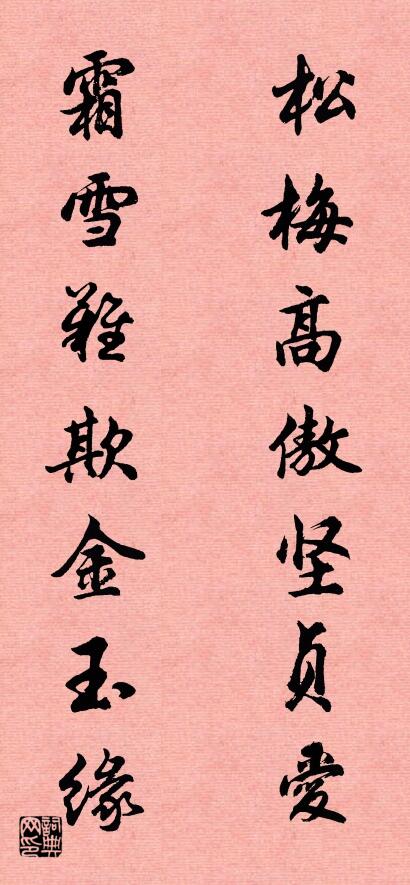 松梅高傲坚贞爱
霜雪难欺金玉缘
詞典网印